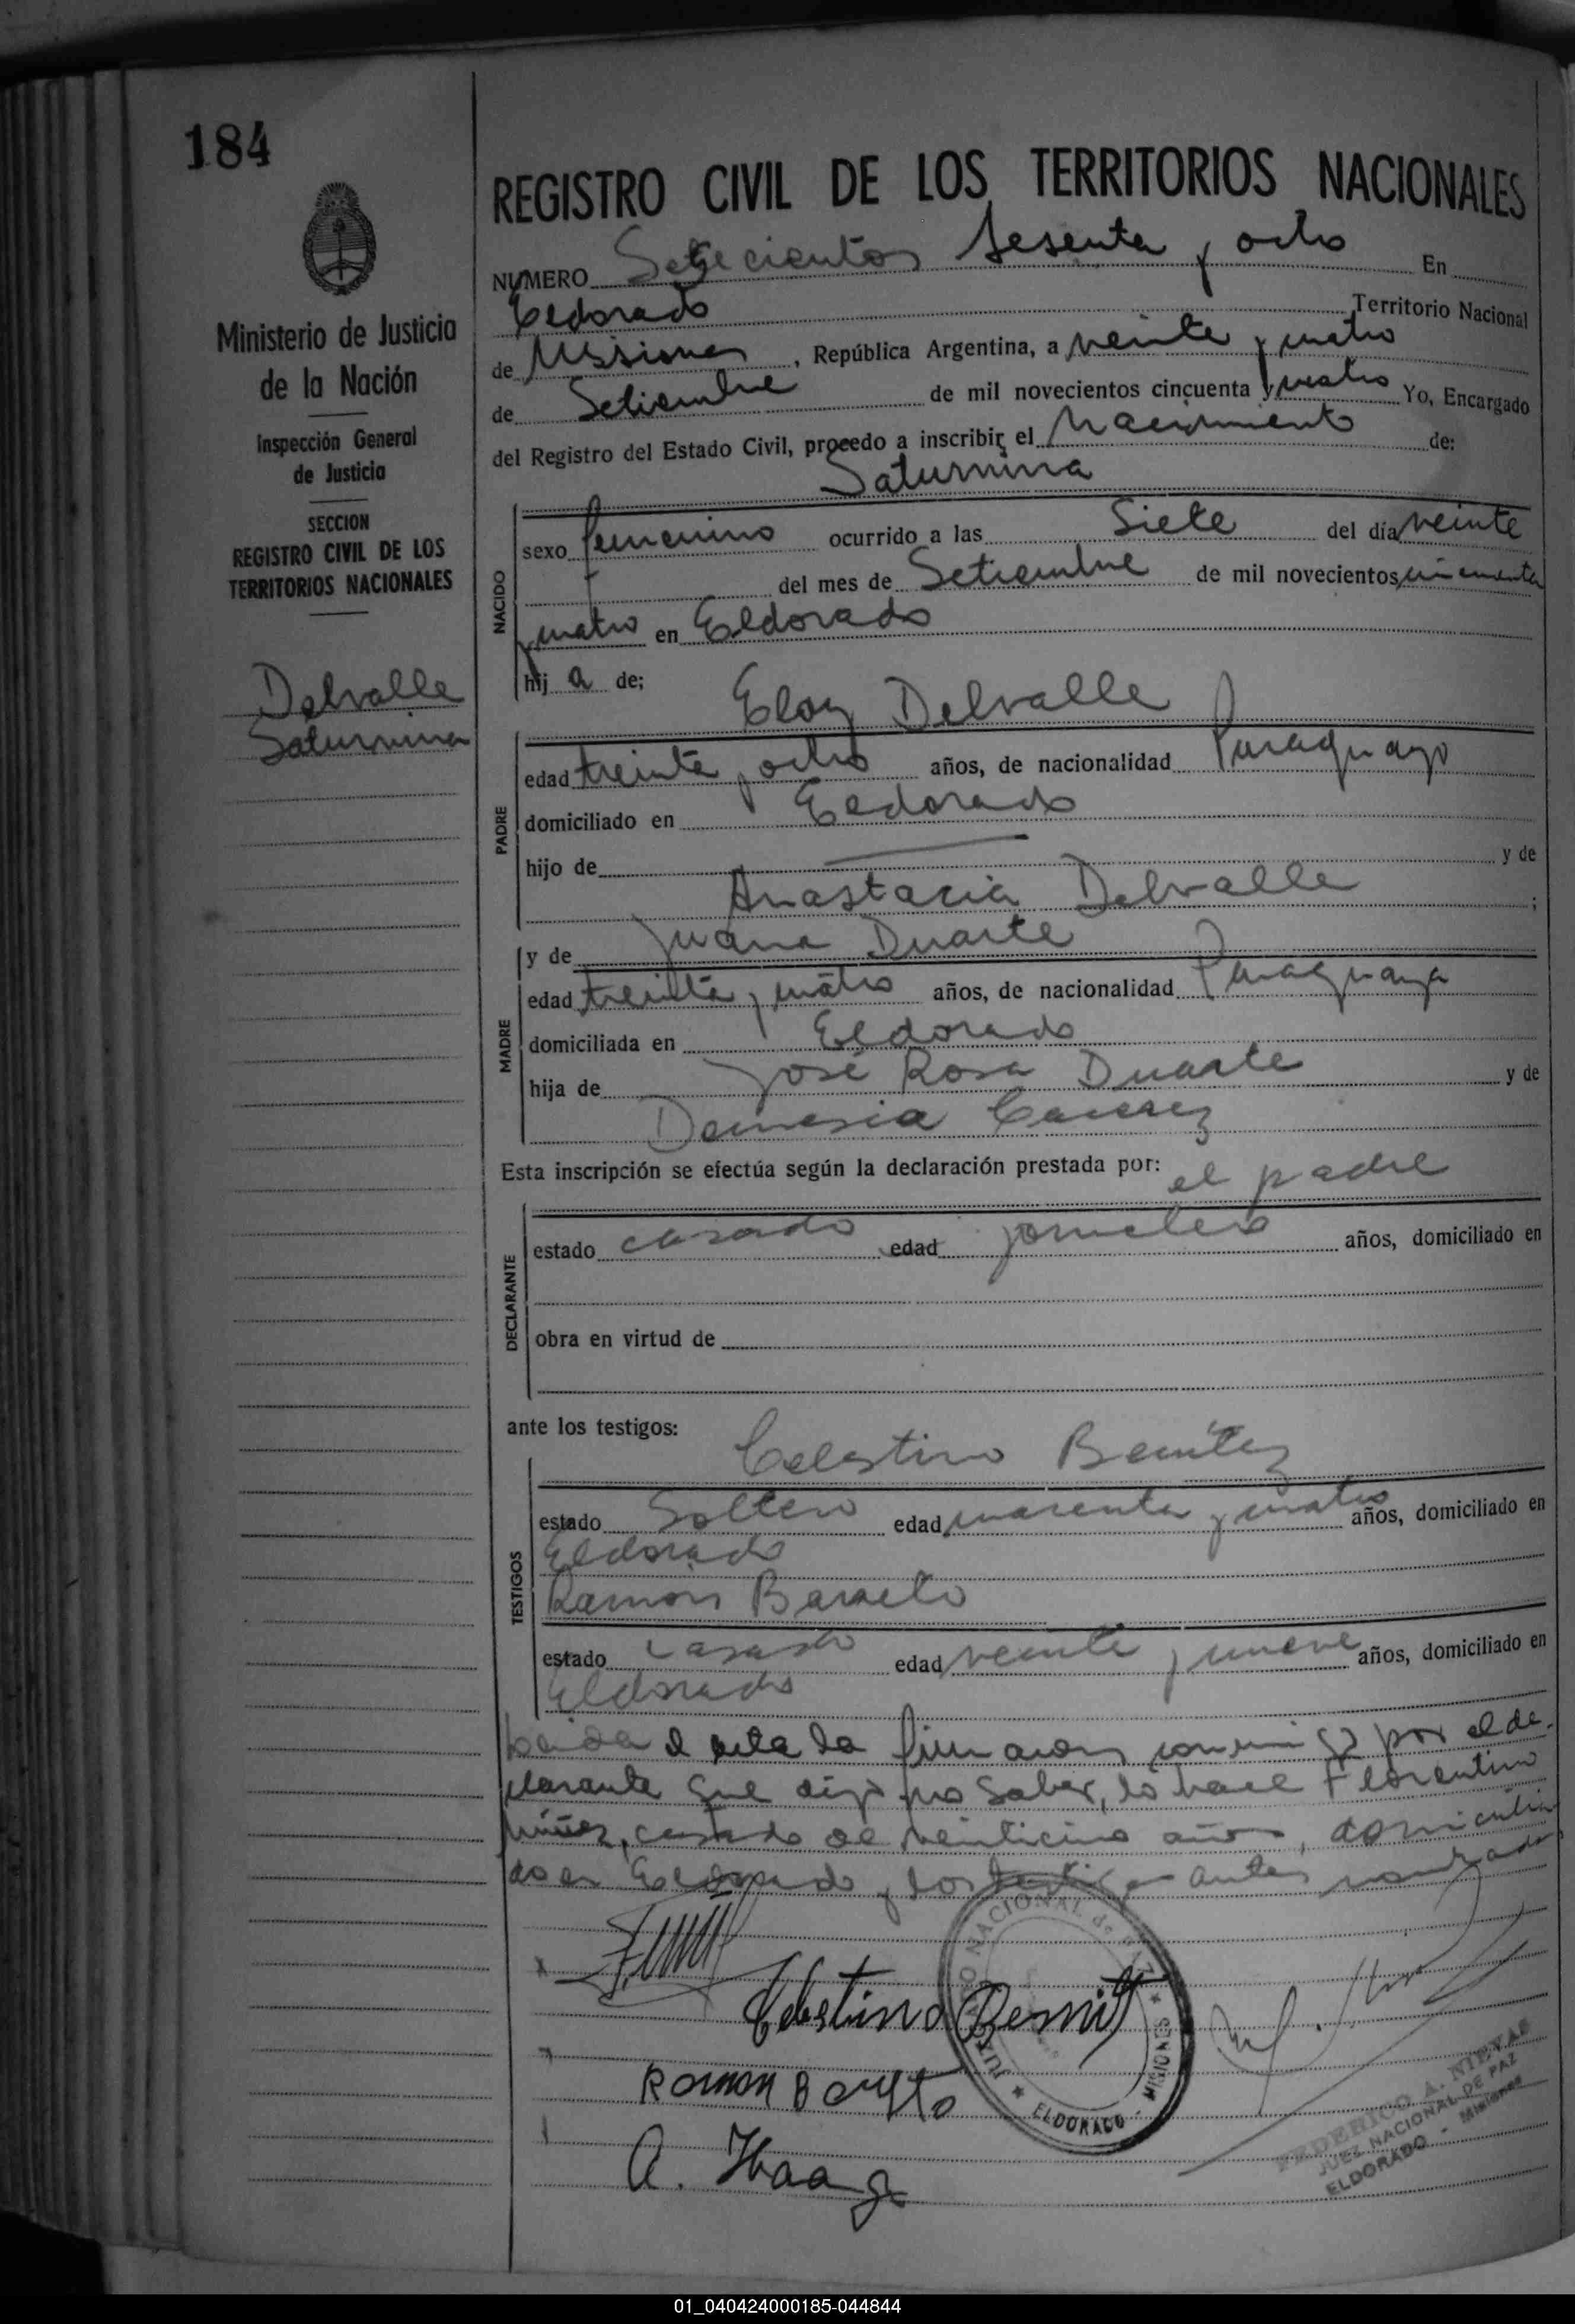 184
REGISTRO CIVIL DE LOS TERRITORIOS NACIONALES
NUMERO Setecientos sesenta y ocho En
Eldorado Territorio Nacional
de Misiones, República Argentina, a veinte y cuatro
de Setiembre de mil novecientos cincuenta y cuatro Yo, Encargado
del Registro del Estado Civil, procedo a inscribir el Nacimiento de:
Saturnina
Ministerio de Justicia
de la Nación
Inspección General
de Justicia
SECCION
REGISTRO CIVIL DE LOS
TERRITORIOS NACIONALES
Delvalle
Saturnina
NACIDO
sexo femenino ocurrido a las Siete del día veinte
del mes de Setiembre de mil novecientos cincuenta
y cuatro en Eldorado
hij a de;
Eloy Delvalle
PADRE
edad treinta y ocho años, de nacionalidad Paraguayo
domiciliado en Eldorado
hijo de y de
Anastacia Delvalle ;
y de Juana Duarte
MADRE
edad treinta y cuatro años, de nacionalidad Paraguaya
domiciliada en Eldorado
hija de José Rosa Duarte y de
Demesia Caceres
Esta inscripción se efectúa según la declaración prestada por: el padre
DECLARANTE
estado casado edad jornalero años, domiciliado en
obra en virtud de
ante los testigos:
Celestino Benítez
TESTIGOS
estado Soltero edad cuarenta y cuatro años, domiciliado en
Eldorado
Ramón Barreto
estado casado edad veinte y nueve años, domiciliado en
Eldorado
Leida el acta la firmaron conmigo por el de-
clarante que dijo no saber, lo hace Florentino
Núñez, casado de veinticinco años, domicilia
do en Eldorado y los testigos antes nombrados
Celestino Benitez
Ramon Barreto
A. Haag
JUZGADO NACIONAL de PAZ
ELDORADO - MISIONES
FEDERICO A. NIEVAS
JUEZ NACIONAL DE PAZ
ELDORADO - Misiones
01_040424000185-044844